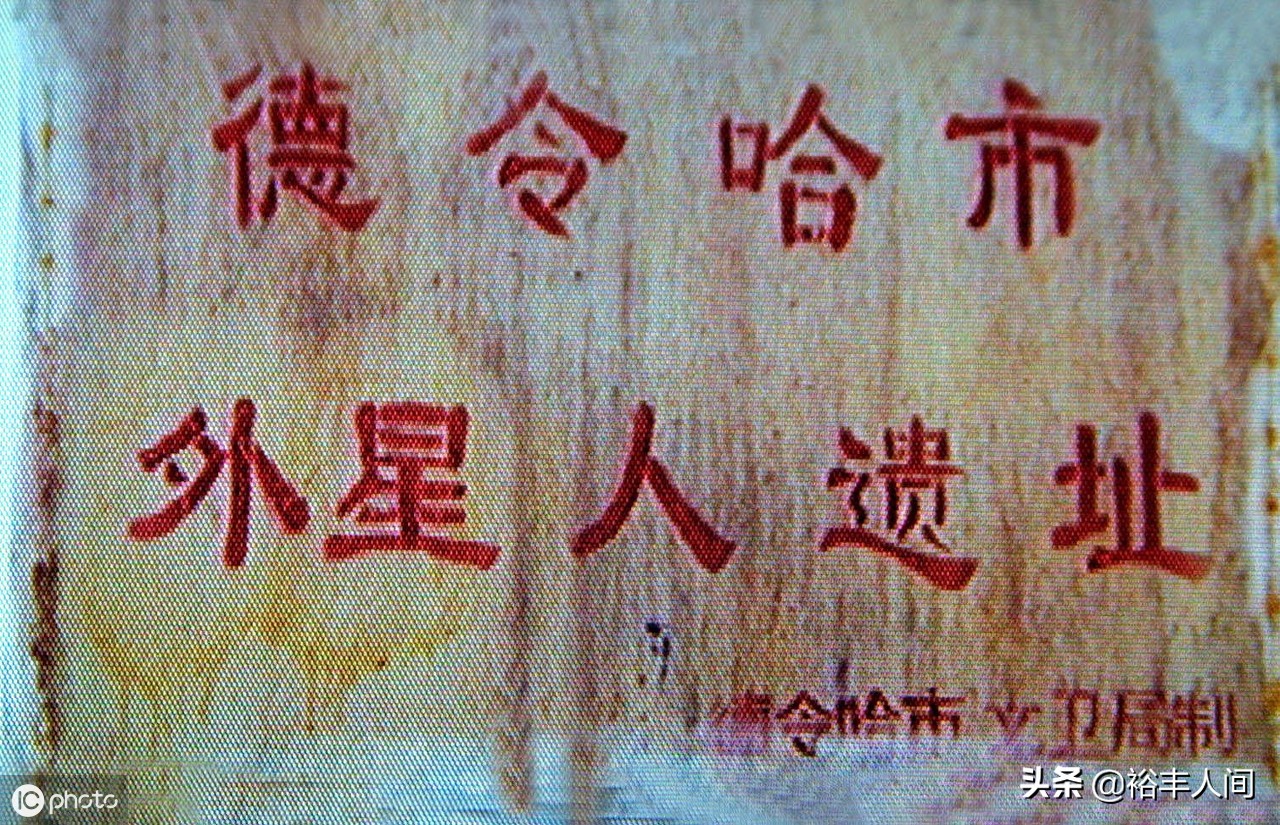 德令哈市
外星人遗址
德令哈市文卫局制
头条@裕丰人间
IC photo